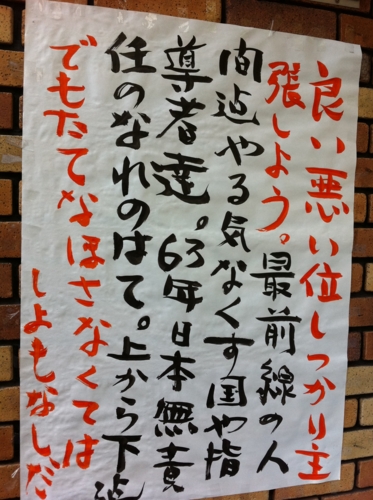 良い悪い位しっかり主
張しよう。最前線の人
間迠やる気なくす国や指
導者達。63年日本無責
任のなれのはて。上から下迠
でもたてなほさなくては
しよもなしだ